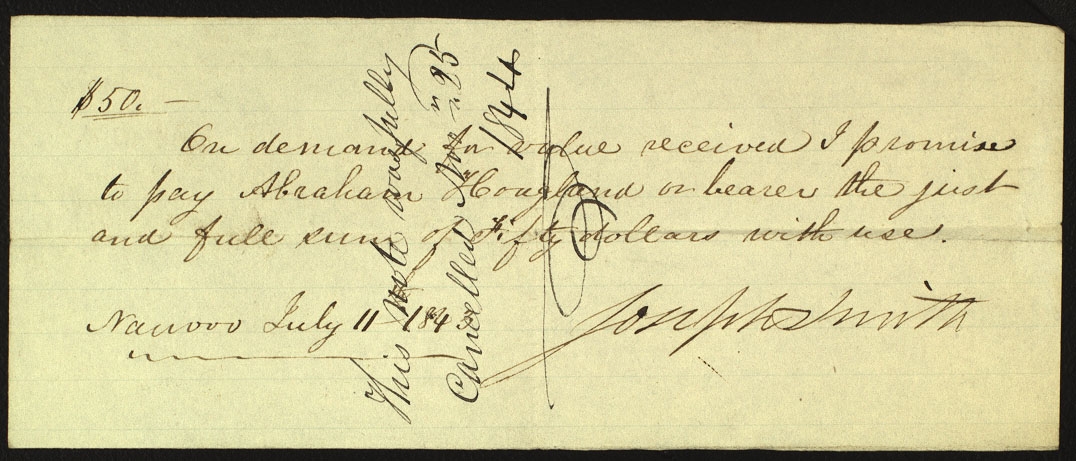 $50.—
On demand for value received I promise
to pay Abraham Hoagland or bearer the just
and full sum of Fifty dollars with use.
Nauvoo July 11 – 1843
Joseph Smith
This note was fully
Cancelled Nov 25
1844